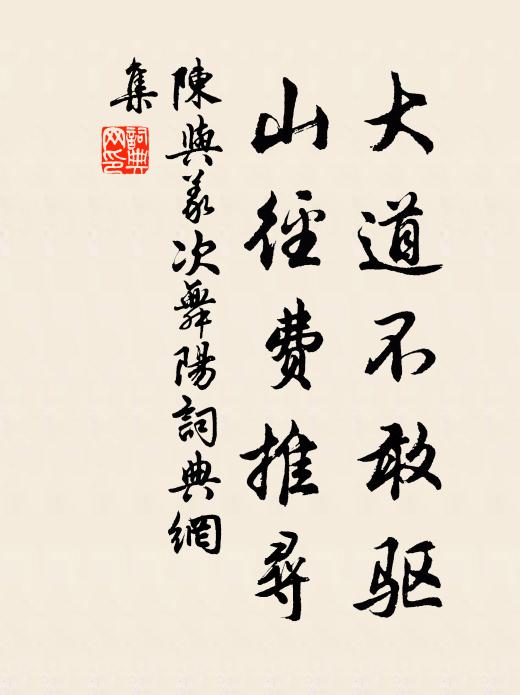 大道不敢驱
山徑費推尋
陳與義次舞陽詞典網
集
詞典
网印